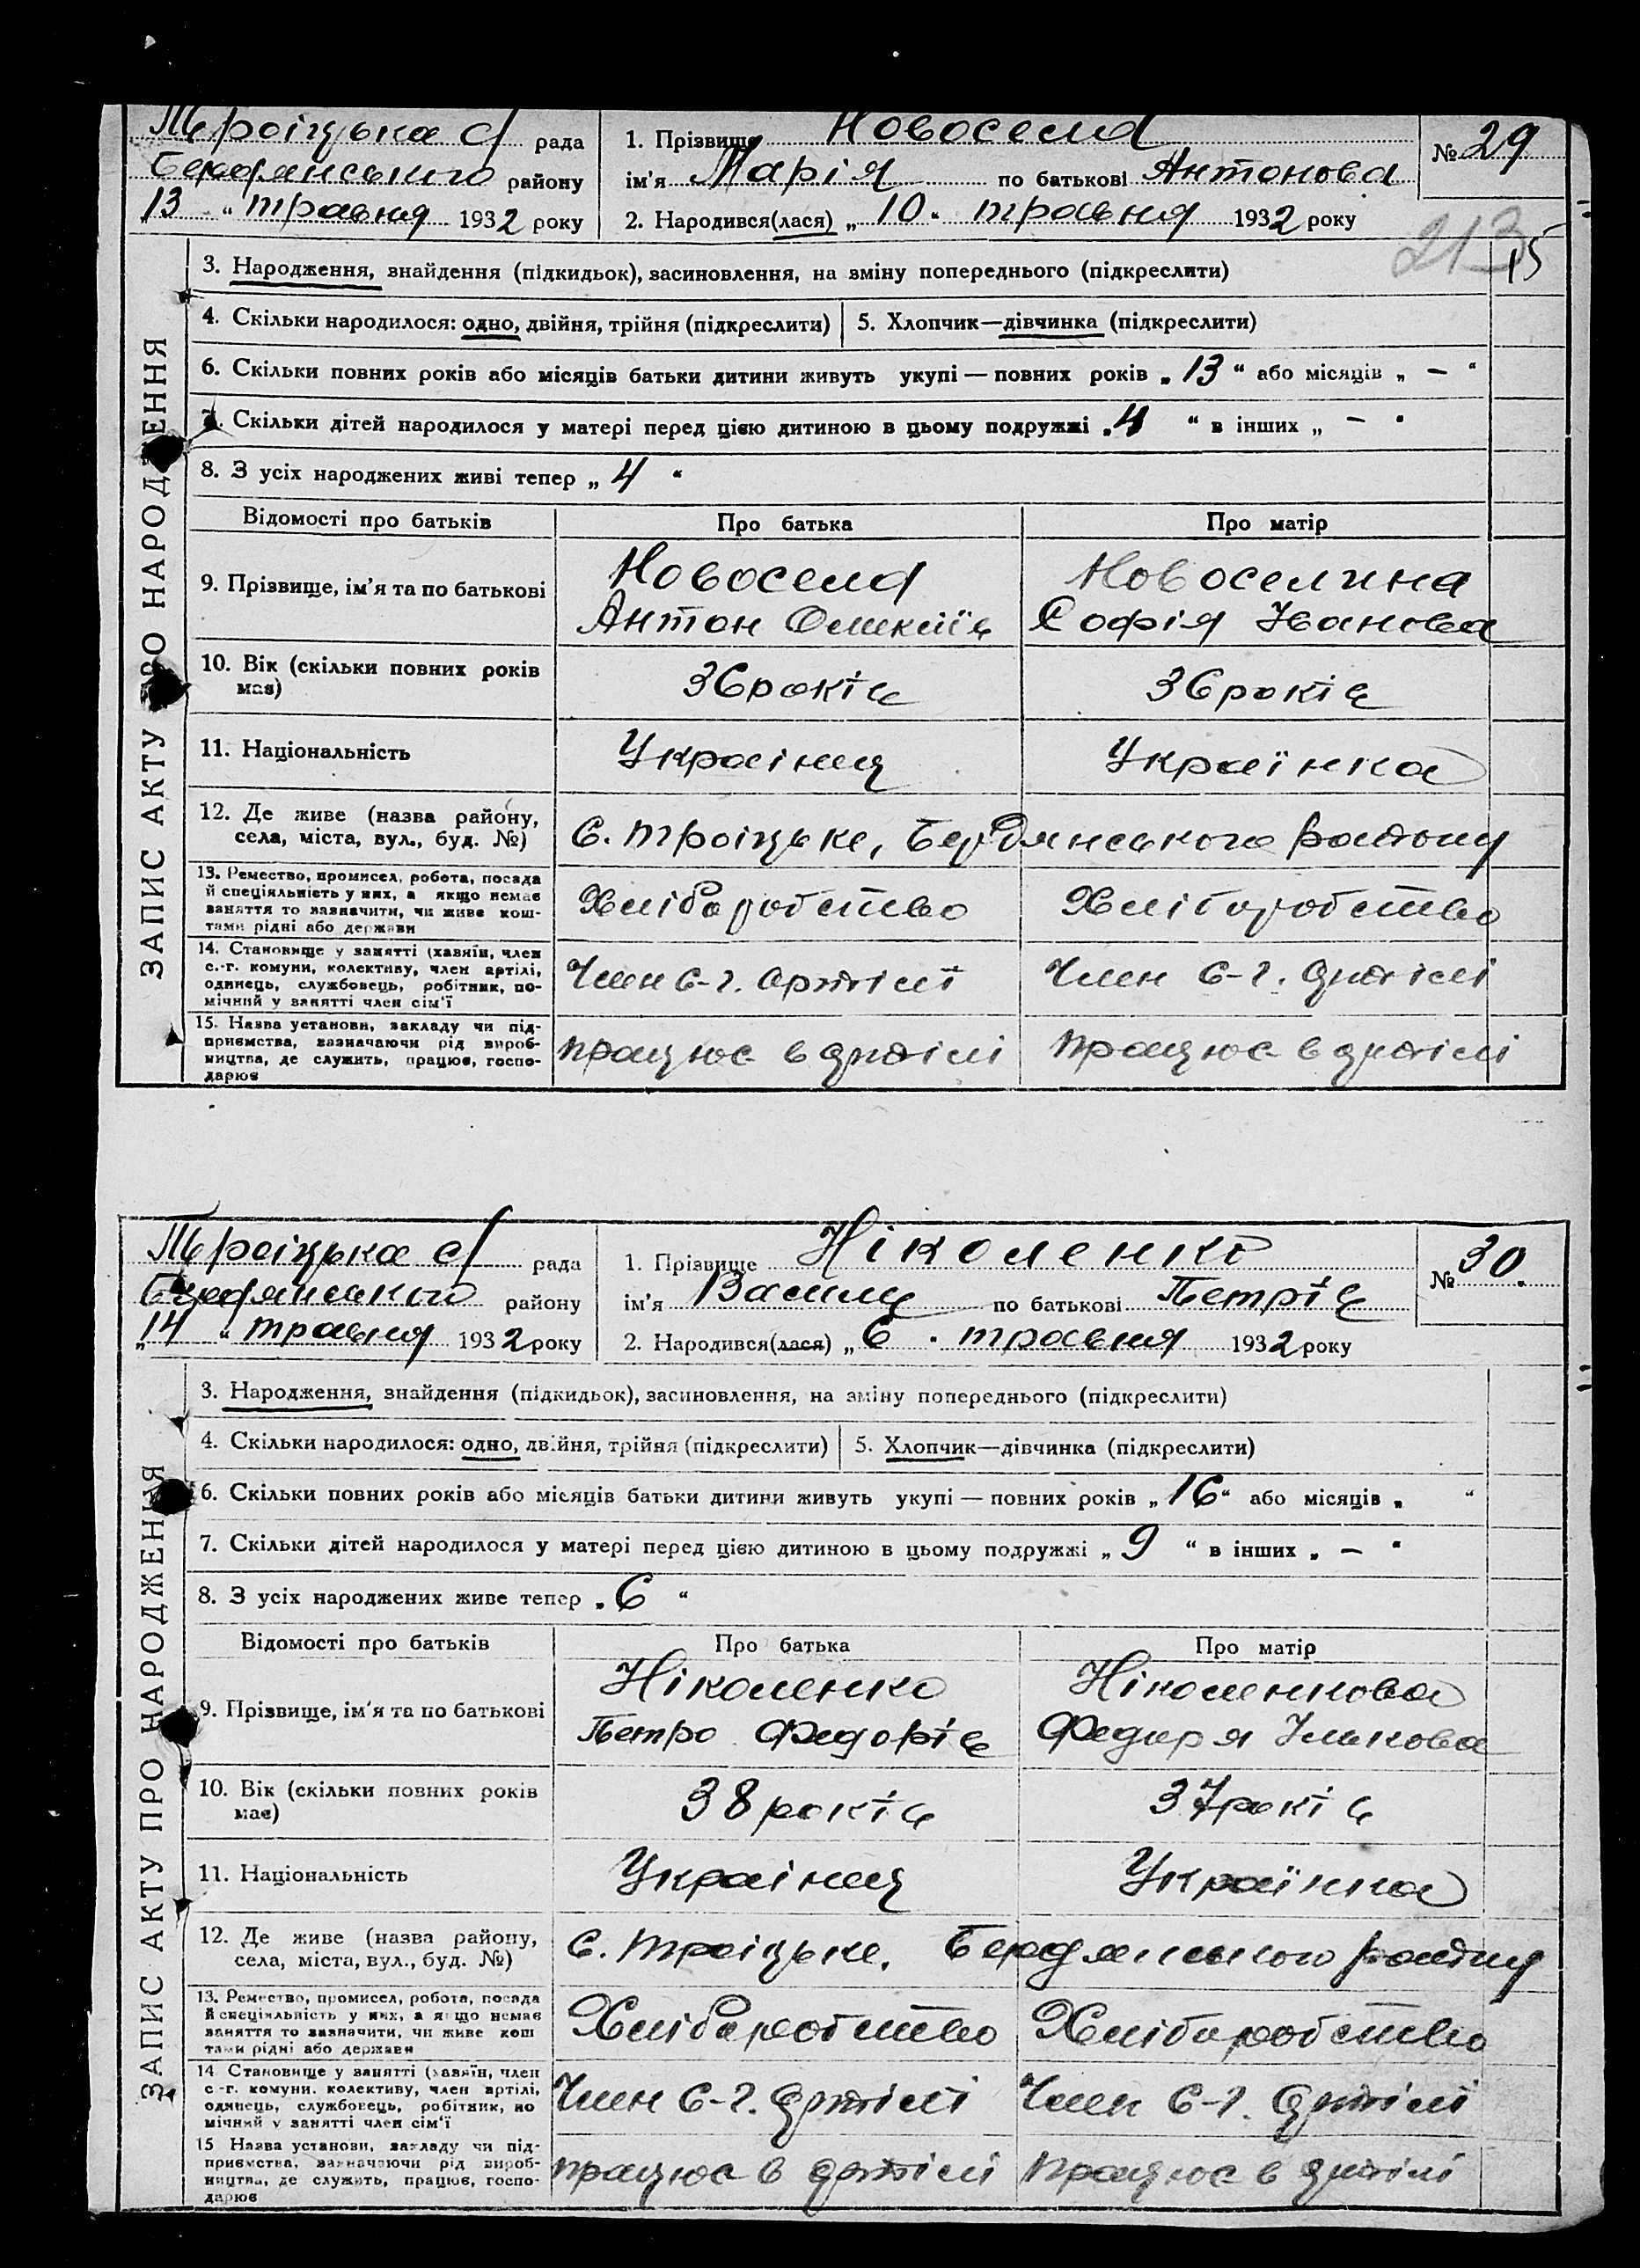 Троіцька с/ рада
Бердянського району
13 " травня 1932 року
1. Прізвище Новосела
ім'я Марія по батькові Антонова
2. Народився(лася) „ 10 " травня 1932 року
№ 29
213
15
ЗАПИС АКТУ ПРО НАРОДЖЕННЯ
3. Народження, знайдення (підкидьок), засиновлення, на зміну попереднього (підкреслити)
4. Скільки народилося: одно, двійня, трійня (підкреслити) 5. Хлопчик—дівчинка (підкреслити)
6. Скільки повних років або місяців батьки дитини живуть укупі — повних років „ 13 " або місяців „ — "
7. Скільки дітей народилося у матері перед цією дитиною в цьому подружжі „ 4 " в інших „ — "
8. З усіх народжених живі тепер „ 4 "
Відомості про батьків Про батька Про матір
9. Прізвище, ім'я та по батькові
Новосела
Антон
Новоселина
Софія Іванова
10. Вік (скільки повних років
має)
36 років 36 років
11. Національність Украінец Украïнка
12. Де живе (назва району,
села, міста, вул., буд. №)
С. Троіцьке, Бердянського району
13. Ремество, промисел, робота, посада
й спеціяльність у них, а якщо немає
заняття то зазначити, чи живе кош-
тами рідні або держави
Хліборобство Хліборобство
14. Становище у занятті (хазяїн, член
с.-г. комуни, колективу, член артілі,
одинець, службовець, робітник, по-
мічний у занятті член сім'ї
Член С-г. артілі Член С-г. артілі
15. Назва установи, закладу чи під-
приємства, зазначаючи рід вироб-
ництва, де служить, працює, госпо-
дарює
працює в артілі працює в артілі
Троіцька с/ рада
Бердянського району
„ 14 " травня 1932 року
1. Прізвище Ніколенко
ім'я Василь по батькові Петрів
2. Народився(лася) „ 6 " травня 1932 року
№ 30.
ЗАПИС АКТУ ПРО НАРОДЖЕННЯ
3. Народження, знайдення (підкидьок), засиновлення, на зміну попереднього (підкреслити)
4. Скільки народилося: одно, двійня, трійня (підкреслити) 5. Хлопчик—дівчинка (підкреслити)
6. Скільки повних років або місяців батьки дитини живуть укупі — повних років „ 16 " або місяців „ "
7. Скільки дітей народилося у матері перед цією дитиною в цьому подружжі „ 9 " в інших „ — "
8. З усіх народжених живе тепер „ 6 "
Відомості про батьків Про батька Про матір
9. Прізвище, ім'я та по батькові
Ніколенко
Петро Федорів
Ніколенкова
Федора Ількова
10. Вік (скільки повних років
має)
38 років 37 років
11. Національність Украінец Украïнка
12. Де живе (назва району,
села, міста, вул., буд. №)
С. Троіцьке, Бердянського району
13. Ремество, промисел, робота, посада
й спеціяльність у них, а якщо немає
заняття то зазначити, чи живе кош
тами рідні або держави
Хліборобство Хліборобство
14 Становище у занятті (хазяїн, член
с.-г. комуни, колективу, член артілі,
одинець, службовець, робітник, по
мічний у занятті член сім'ї
Член С-г. артілі Член С-г. артілі
15 Назва установи, закладу чи під-
приємства, зазначаючи рід вироб-
ництва, де служить, працює, госпо-
дарює
працює в артілі працює в артілі